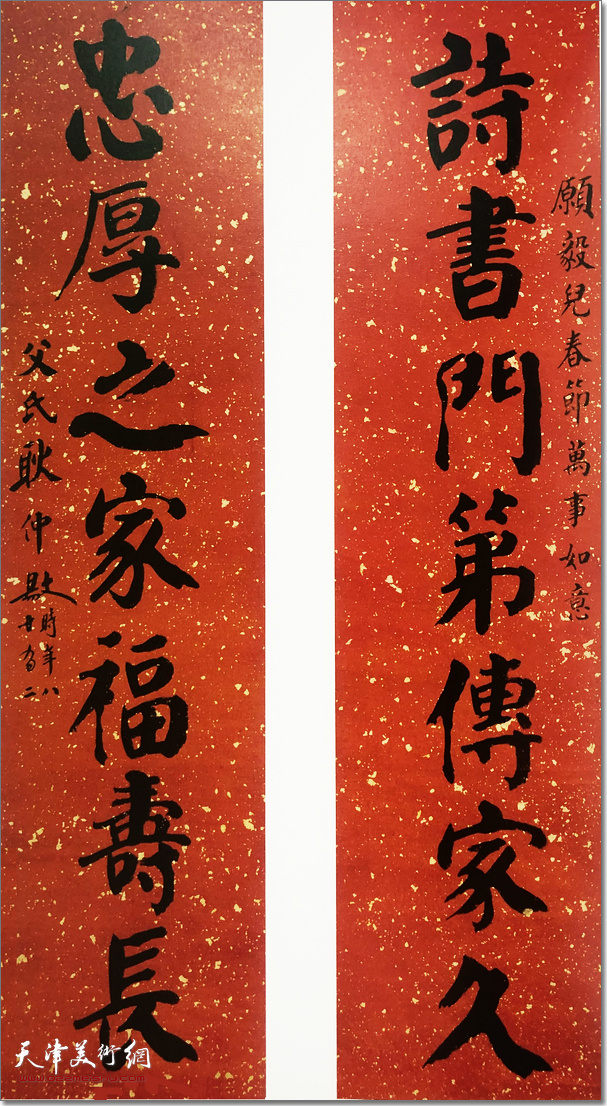 願毅兒春節萬事如意
詩書門第傳家久
忠厚之家福壽長
父氏耿仲敭時年八
有二
天津美術網